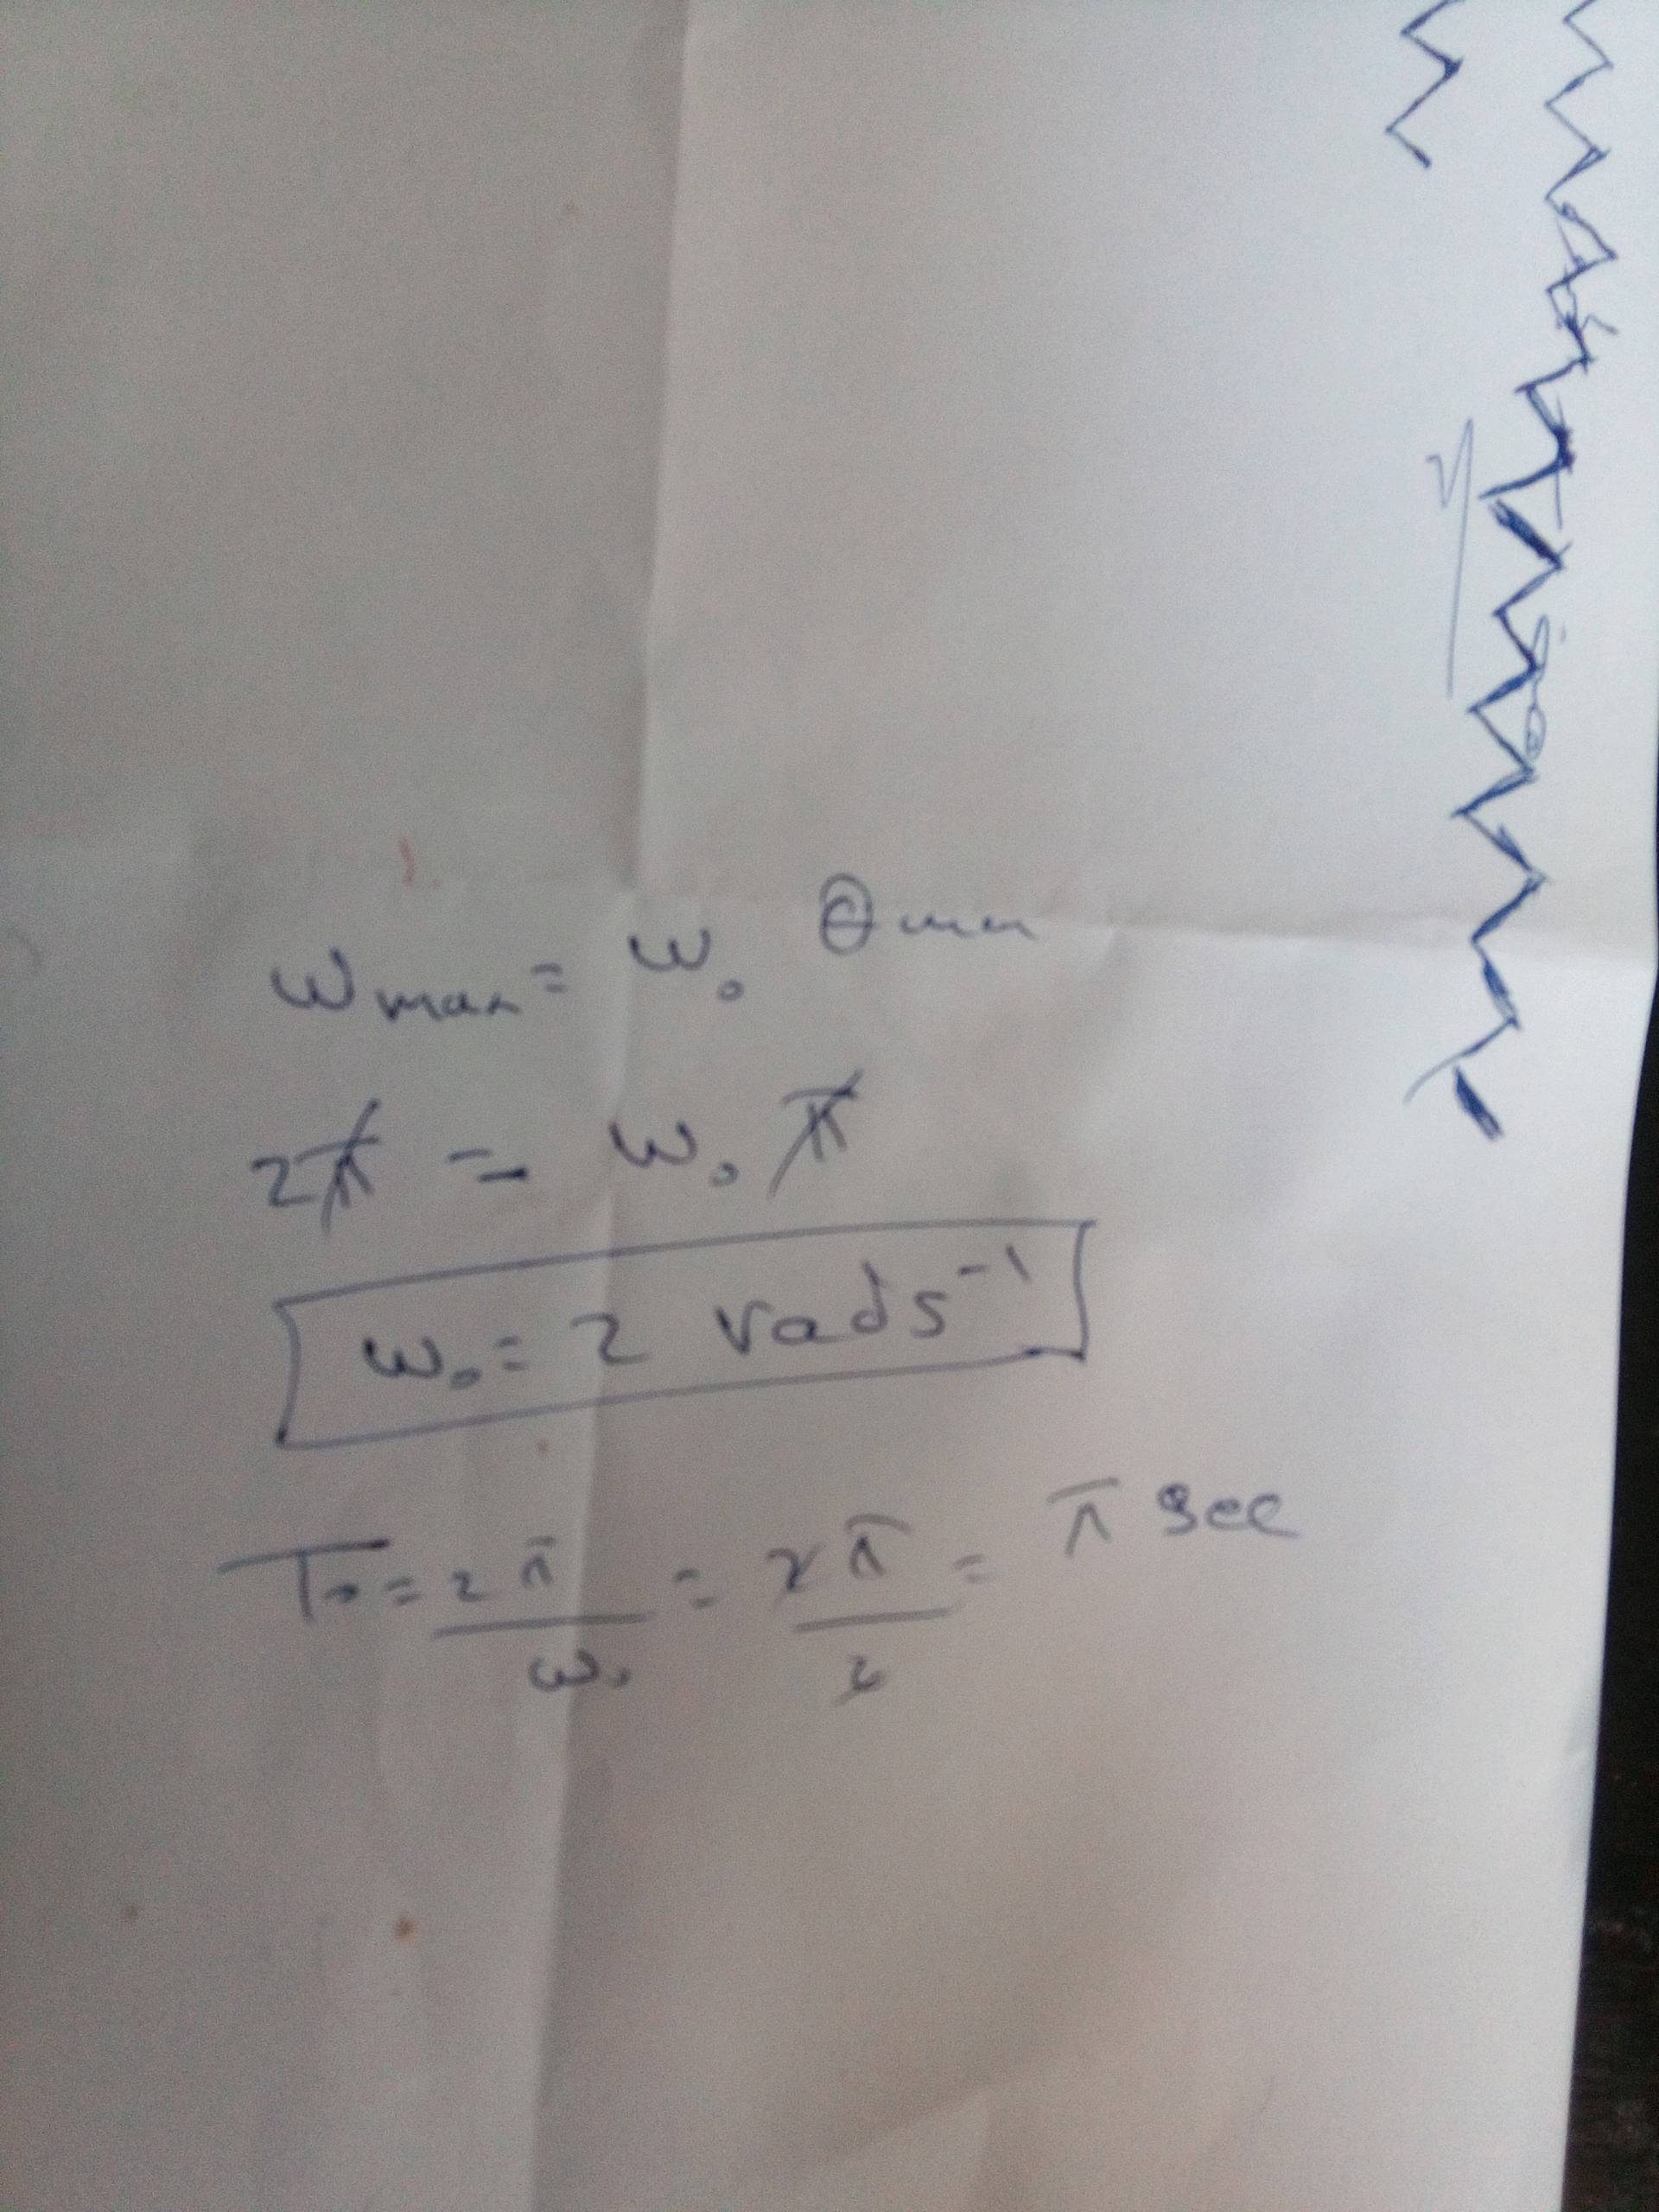 ωmax = ω₀ θmax
2π = ω₀ π
ω₀ = 2 rad s⁻¹
T₀ = 2π/ω₀ = 2π/2 = π sec